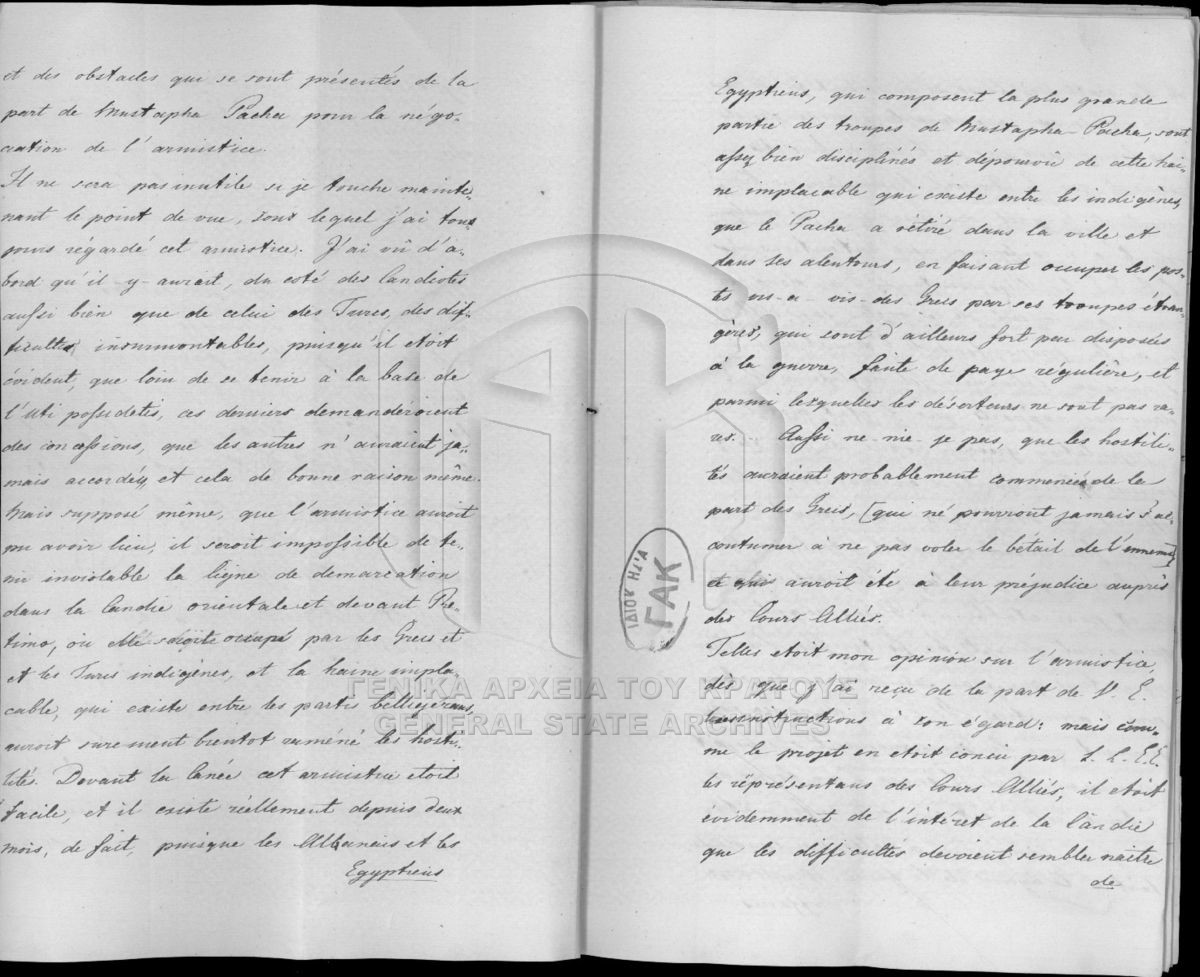 et des obstacles qui se sont présentés de la
part de Mustapha Pacha pour la négo-
ciation de l'armistice.
Il ne sera pas inutile si je touche mainte-
nant le point de vue, sous lequel j'ai tou-
jours régardé cet armistice. J'ai vû d'a-
bord qu'il-y-auroit, du coté des Candiotes
aussi bien que de celui des Turcs, des dif-
ficultés insurmontables, puisqu'il etoit
évident, que loin de se tenir à la base de
l'Uti possidetis, ces derniers demanderoient
des concessions, que les autres n'auraient ja-
mais accordés, et cela de bonne raison même.
Mais supposé même, que l'armistice auroit
pu avoir lieu, il seroit impossible de te-
nir inviolable la ligne de demarcation
dans la Candie orientale et devant Re-
timo, où elle seroit occupé par les Grecs et
et les Turcs indigènes, et la haine impla-
cable, qui existe entre les partis belligérans,
auroit surement bientot raméné les hosti-
lités. Devant la Canée cet armistice etoit
facile, et il existe réellement depuis deux
mois, de fait, puisque les Albanais et les
Egyptiens
Egyptiens, qui composent la plus grande
partie des troupes de Mustapha-Pacha, sont
assez bien disciplinés et dépourvû de cette hai-
ne implacable qui existe entre les indigènes,
que le Pacha a rétiré dans la ville et
dans ses alentours, en faisant occuper les pos-
tes vis-a-vis-des Grecs par ses troupes étran-
gères, qui sont d'ailleurs fort peu disposées
à la guerre, faute de paye régulière, et
parmi lesquelles les déserteurs ne sont pas ra-
res. Aussi ne-nie-je pas, que les hostili-
tés auraient probablement commencées de la
part des Grecs, (qui ne pourront jamais s'ac-
coutumer à ne pas voler le bétail de l'ennemi)
et qui auroit été à leur préjudice auprès
des Cours Alliés.
Telles etoit mon opinion sur l'armistice,
dès que j'ai reçu de la part de V. E.
les instructions à son égard: mais com-
me le projet en etoit conçu par L. L. E.E.
les réprésentans des Cours Alliés, il etoit
évidemment de l'intéret de la Candie
que les difficultés devoient sembler naitre
de
ΓΑΚ
ΓΕΝΙΚΑ ΑΡΧΕΙΑ ΤΟΥ ΚΡΑΤΟΥΣ
GENERAL STATE ARCHIVES